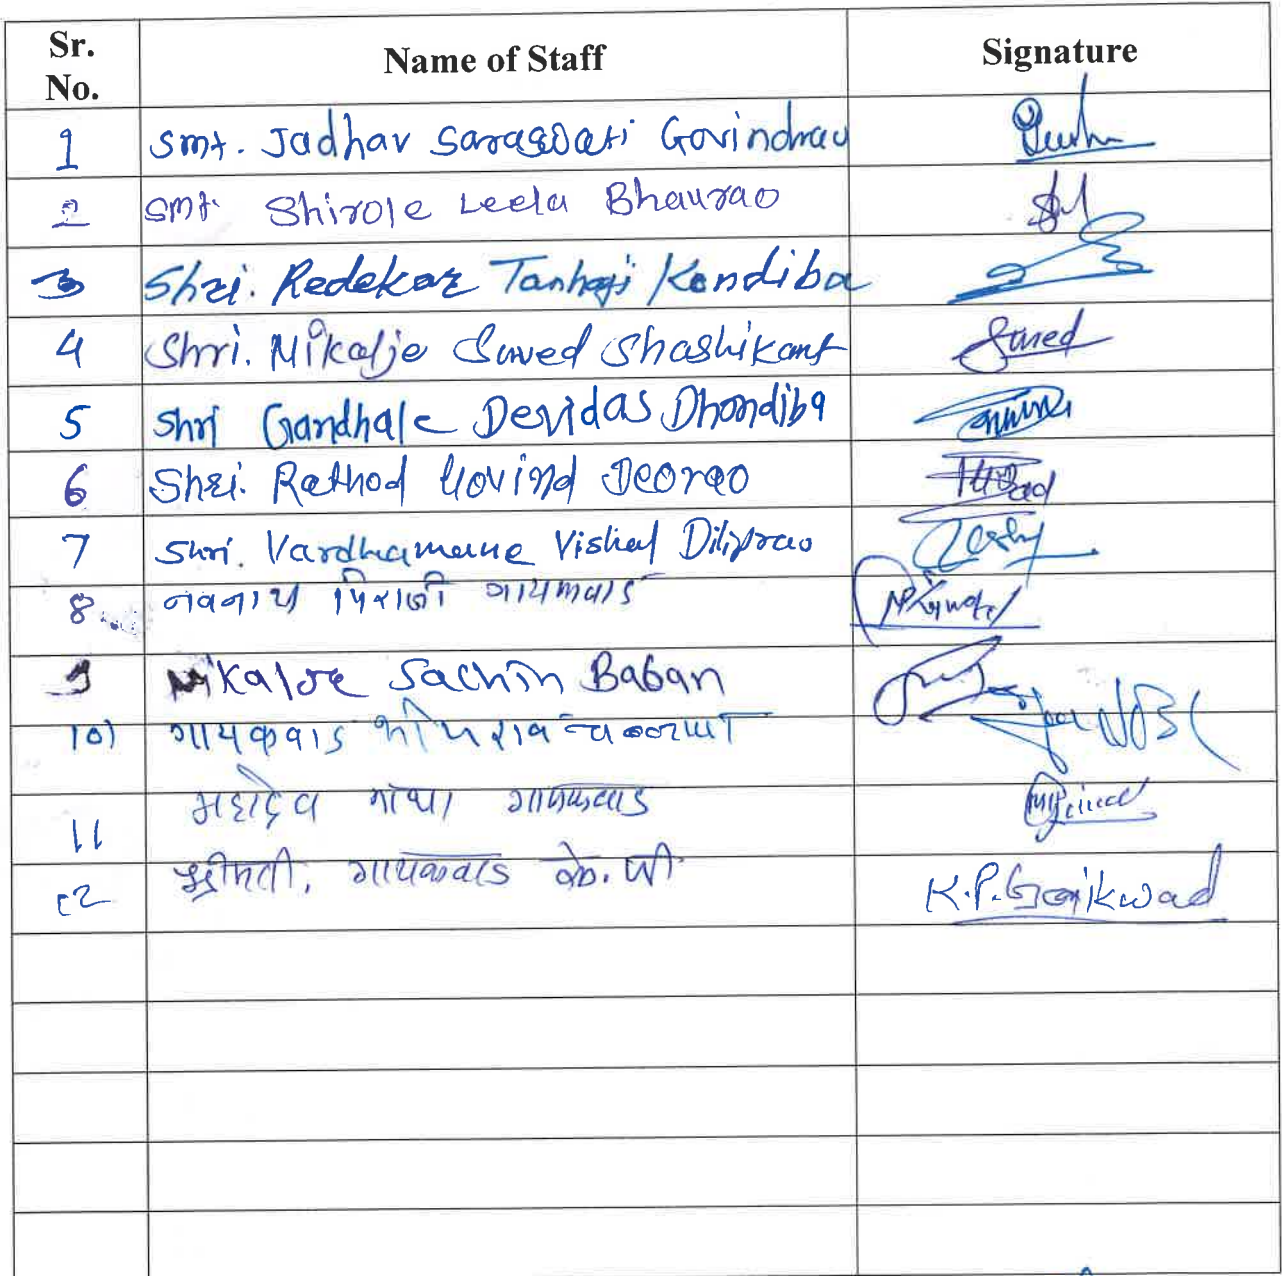 Sr. No. Name of Staff Signature
1 Smt. Jadhav Saraswati Govindrao
2 Smt. Shirole Leela Bhaurao
3 Shri. Redekar Tanhaji Kondiba
4 Shri. Nikalje Suved Shashikant Suved
5 Shri Gandhale Devidas Dhondiba
6 Shri. Rathod Govind Deorao
7 Shri. Vardhamane Vishal Diliprao
8 नवनाथ पिराजी गायकवाड
9 Nikalje Sachin Baban
10) गायकवाड भीमराव
11 महादेव गायकवाड
12 श्रीमती. गायकवाड के. पी K.P. Gaikwad